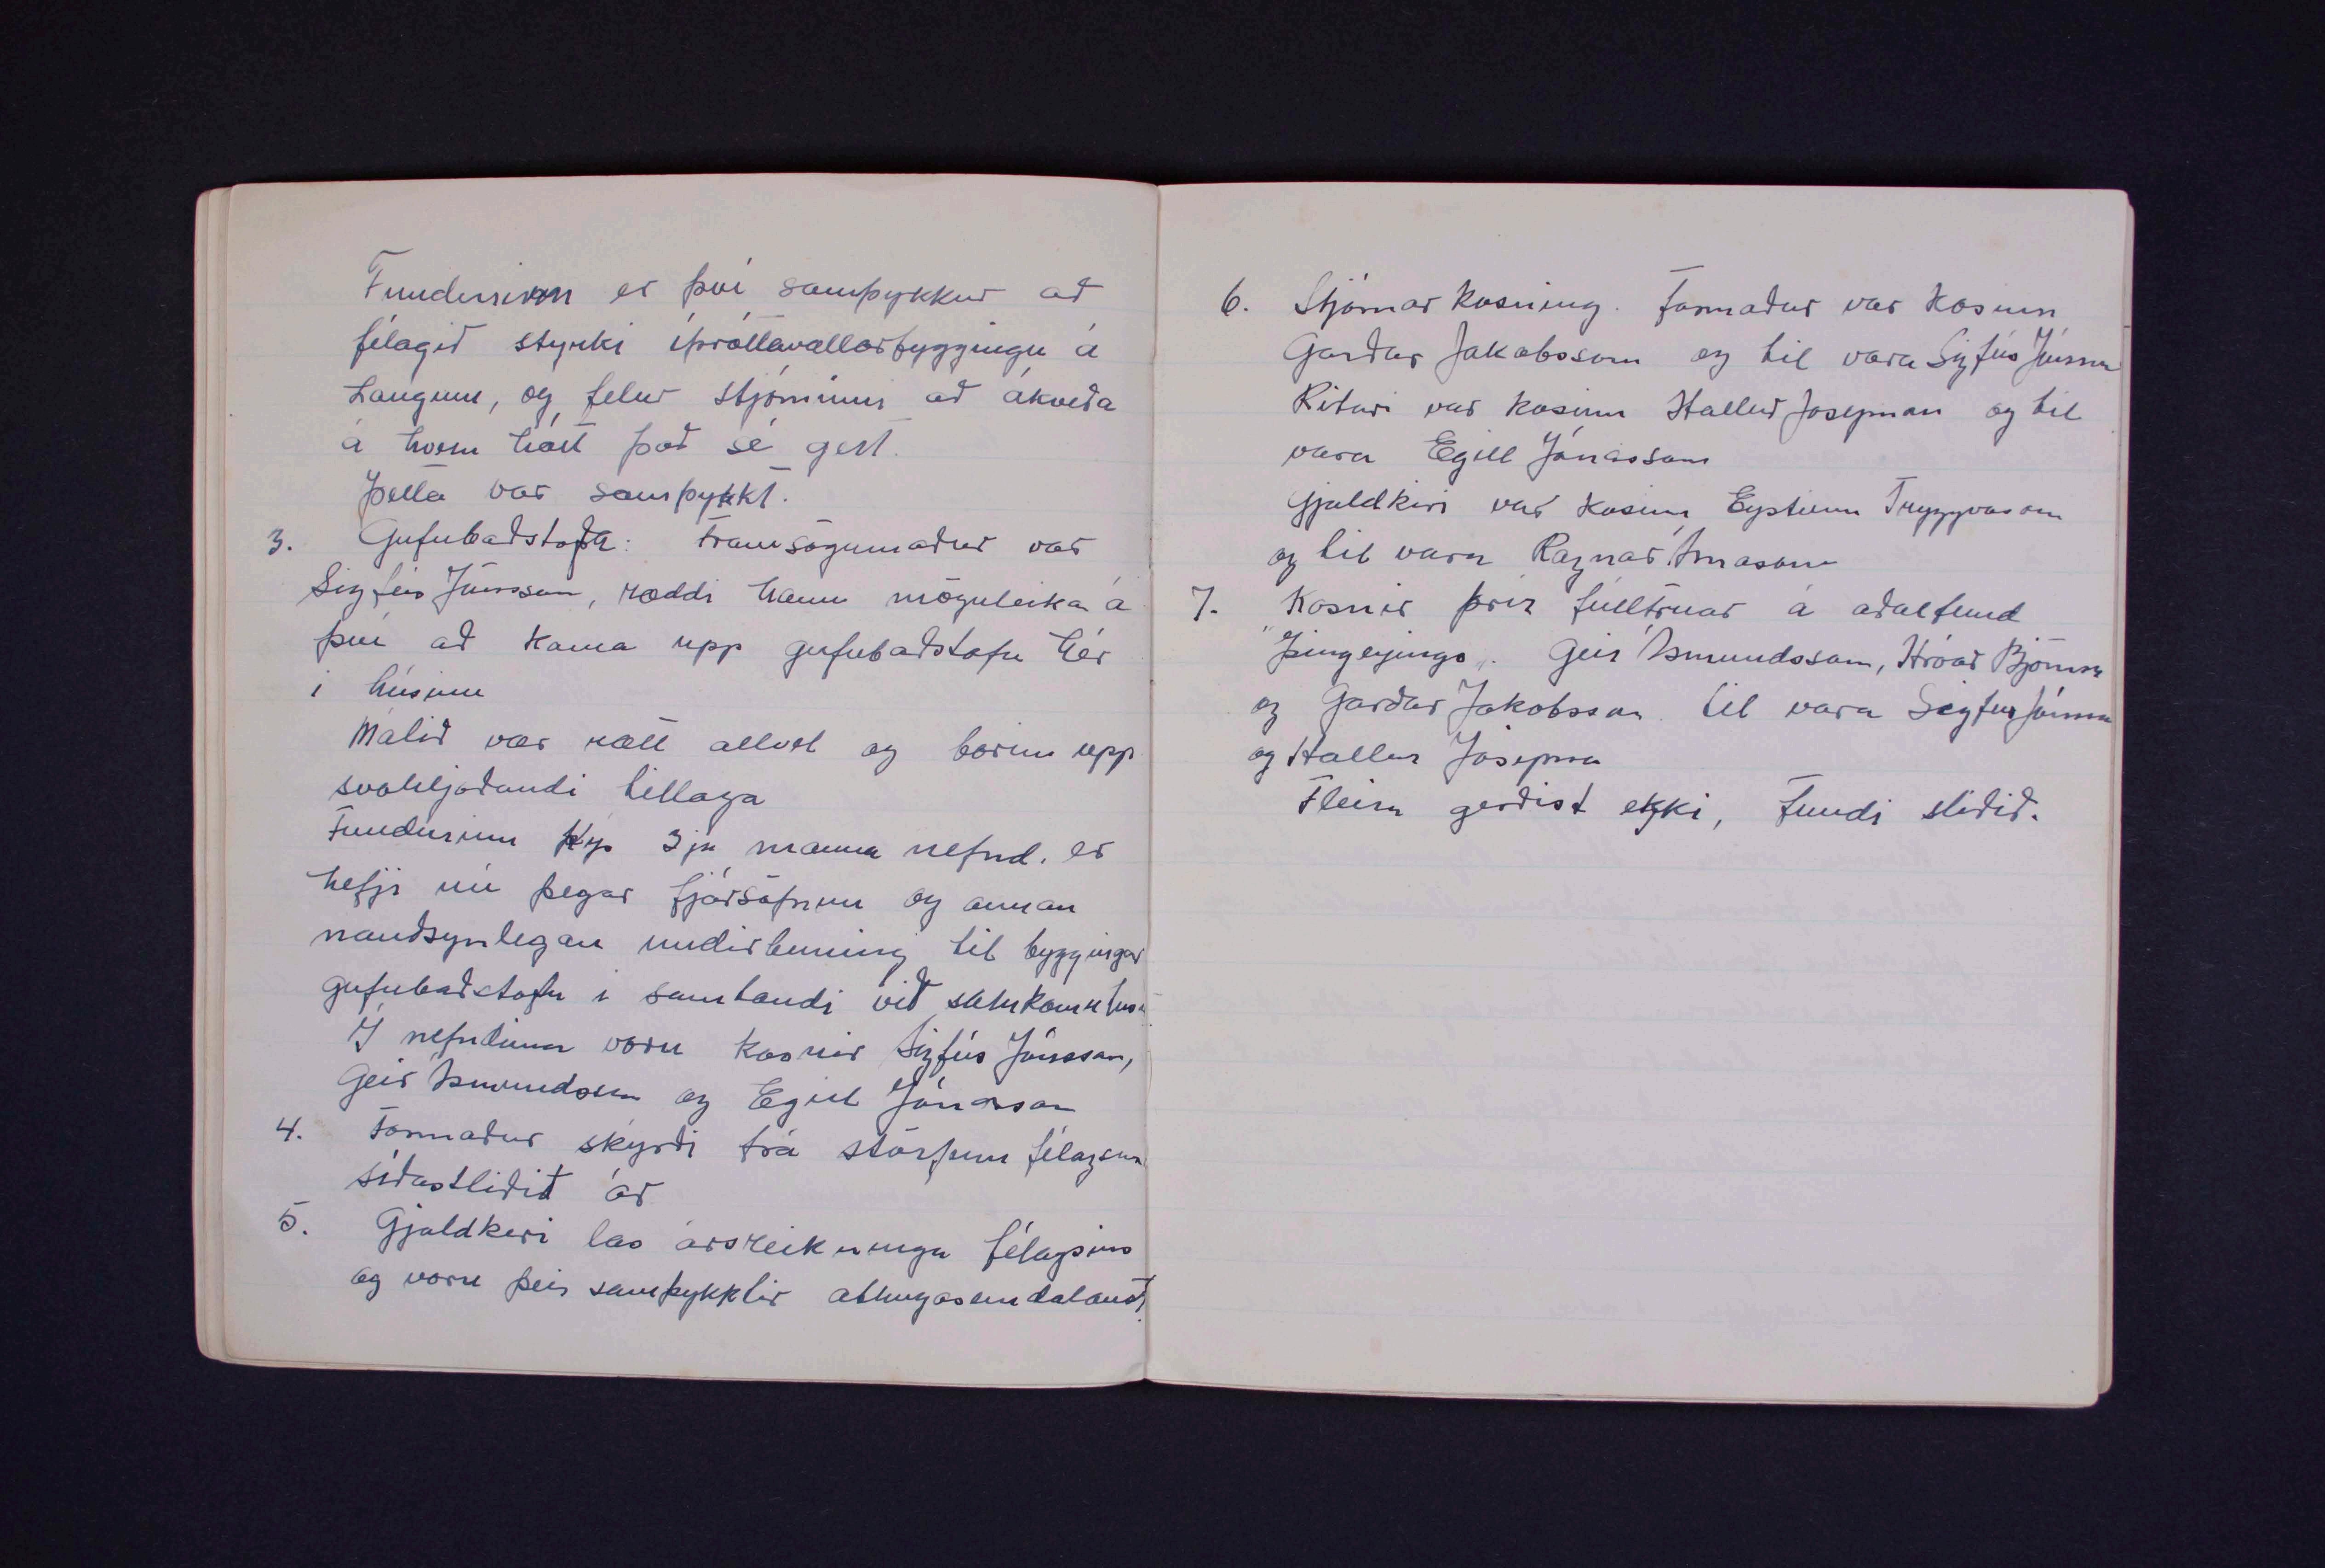 Fundurinn er því samþykkur að
félagið styrki íþróttavallarbyggingu á
Laugum, og felur stjórninni að ákveða
á hvern hátt það sé gert.
Þetta var samþykkt.
3. Gufubaðstofa: Framsögumaður var
Sigfús Jónsson, ræddi hann möguleika á
því að koma upp gufubaðstofu hér
í húsinu
Málið var rætt allvel og borin upp
svohljóðandi tillaga
Fundurinn kýs 3ja manna nefnd, er
hefji nú þegar fjársöfnun og annan
nauðsynlegan undirbúning til byggingar
gufubaðstofu í sambandi við samkomuhús
Í nefndina voru kosnir Sigfús Jónsson,
Geir Ásmundsson og Egill Jónasson
4. Formaður skýrði frá störfum félagsins
síðastliðið ár
5. Gjaldkeri las ársreikninga félagsins
og voru þeir samþykktir athugasemdalaust.
6. Stjórnarkosning. Formaður var kosinn
Garðar Jakobsson og til vara Sigfús Jónsson
Ritari var kosinn Hallur Jósepsson og til
vara Egill Jónasson
Gjaldkeri var kosinn Eysteinn Tryggvason
og til vara Ragnar
7. Kosnir þrír fulltrúar á aðalfund
"Þingeyings". Geir Ásmundsson, Hróar Björnsson
og Garðar Jakobsson. til vara Sigfús Jónsson
og Hallur Jósepsson
Fleira gerðist ekki, fundi slitið.